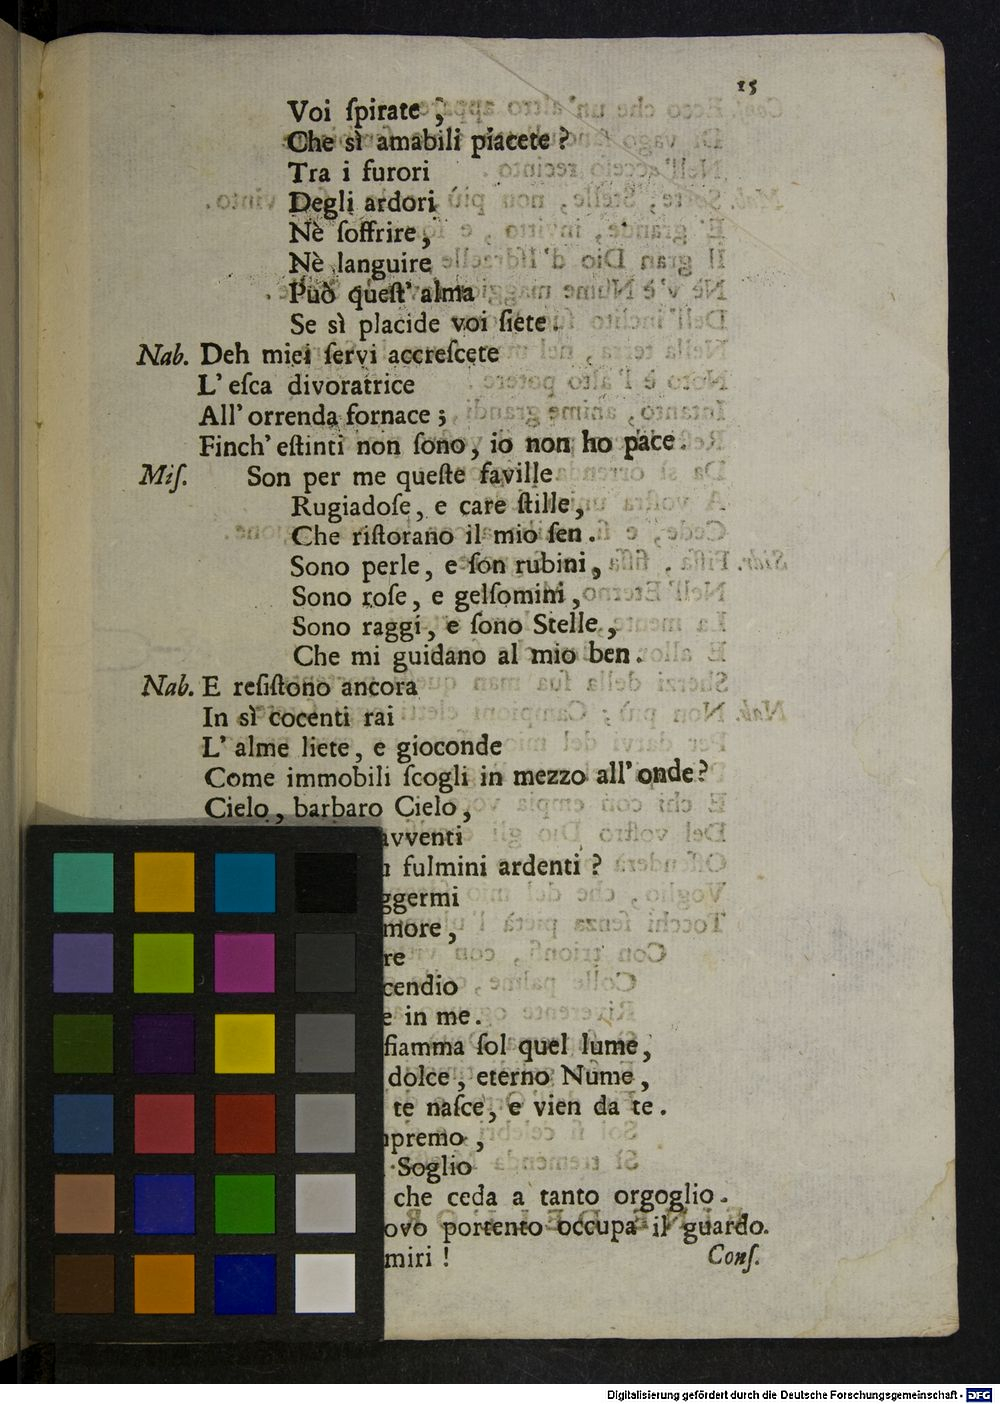 15
Voi ſpirate,
Che sì amabili piacete?
Tra i furori
Degli ardori
Nè ſoffrire,
Nè languire
Può queſt' alma
Se sì placide voi ſiete.
Nab. Deh miei ſervi accreſcete
L' eſca divoratrice
All' orrenda fornace;
Finch' eſtinti non ſono, io non ho pace.
Miſ. Son per me queſte faville
Rugiadoſe, e care ſtille,
Che riſtorano il mio ſen.
Sono perle, e ſon rubini,
Sono roſe, e gelſomini,
Sono raggi, e ſono Stelle,
Che mi guidano al mio ben.
Nab. E reſiſtono ancora
In sì cocenti rai
L' alme liete, e gioconde
Come immobili ſcogli in mezzo all' onde?
Cielo, barbaro Cielo,
avventi
fulmini ardenti?
ggermi
more,
re
cendio
e in me.
fiamma ſol quel lume,
dolce, eterno Nume,
te naſce, e vien da te.
upremo,
Soglio
che ceda a tanto orgoglio.
ovo portento occupa il guardo.
miri!
Conſ.
Digitalisierung gefördert durch die Deutsche Forschungsgemeinschaft - DFG